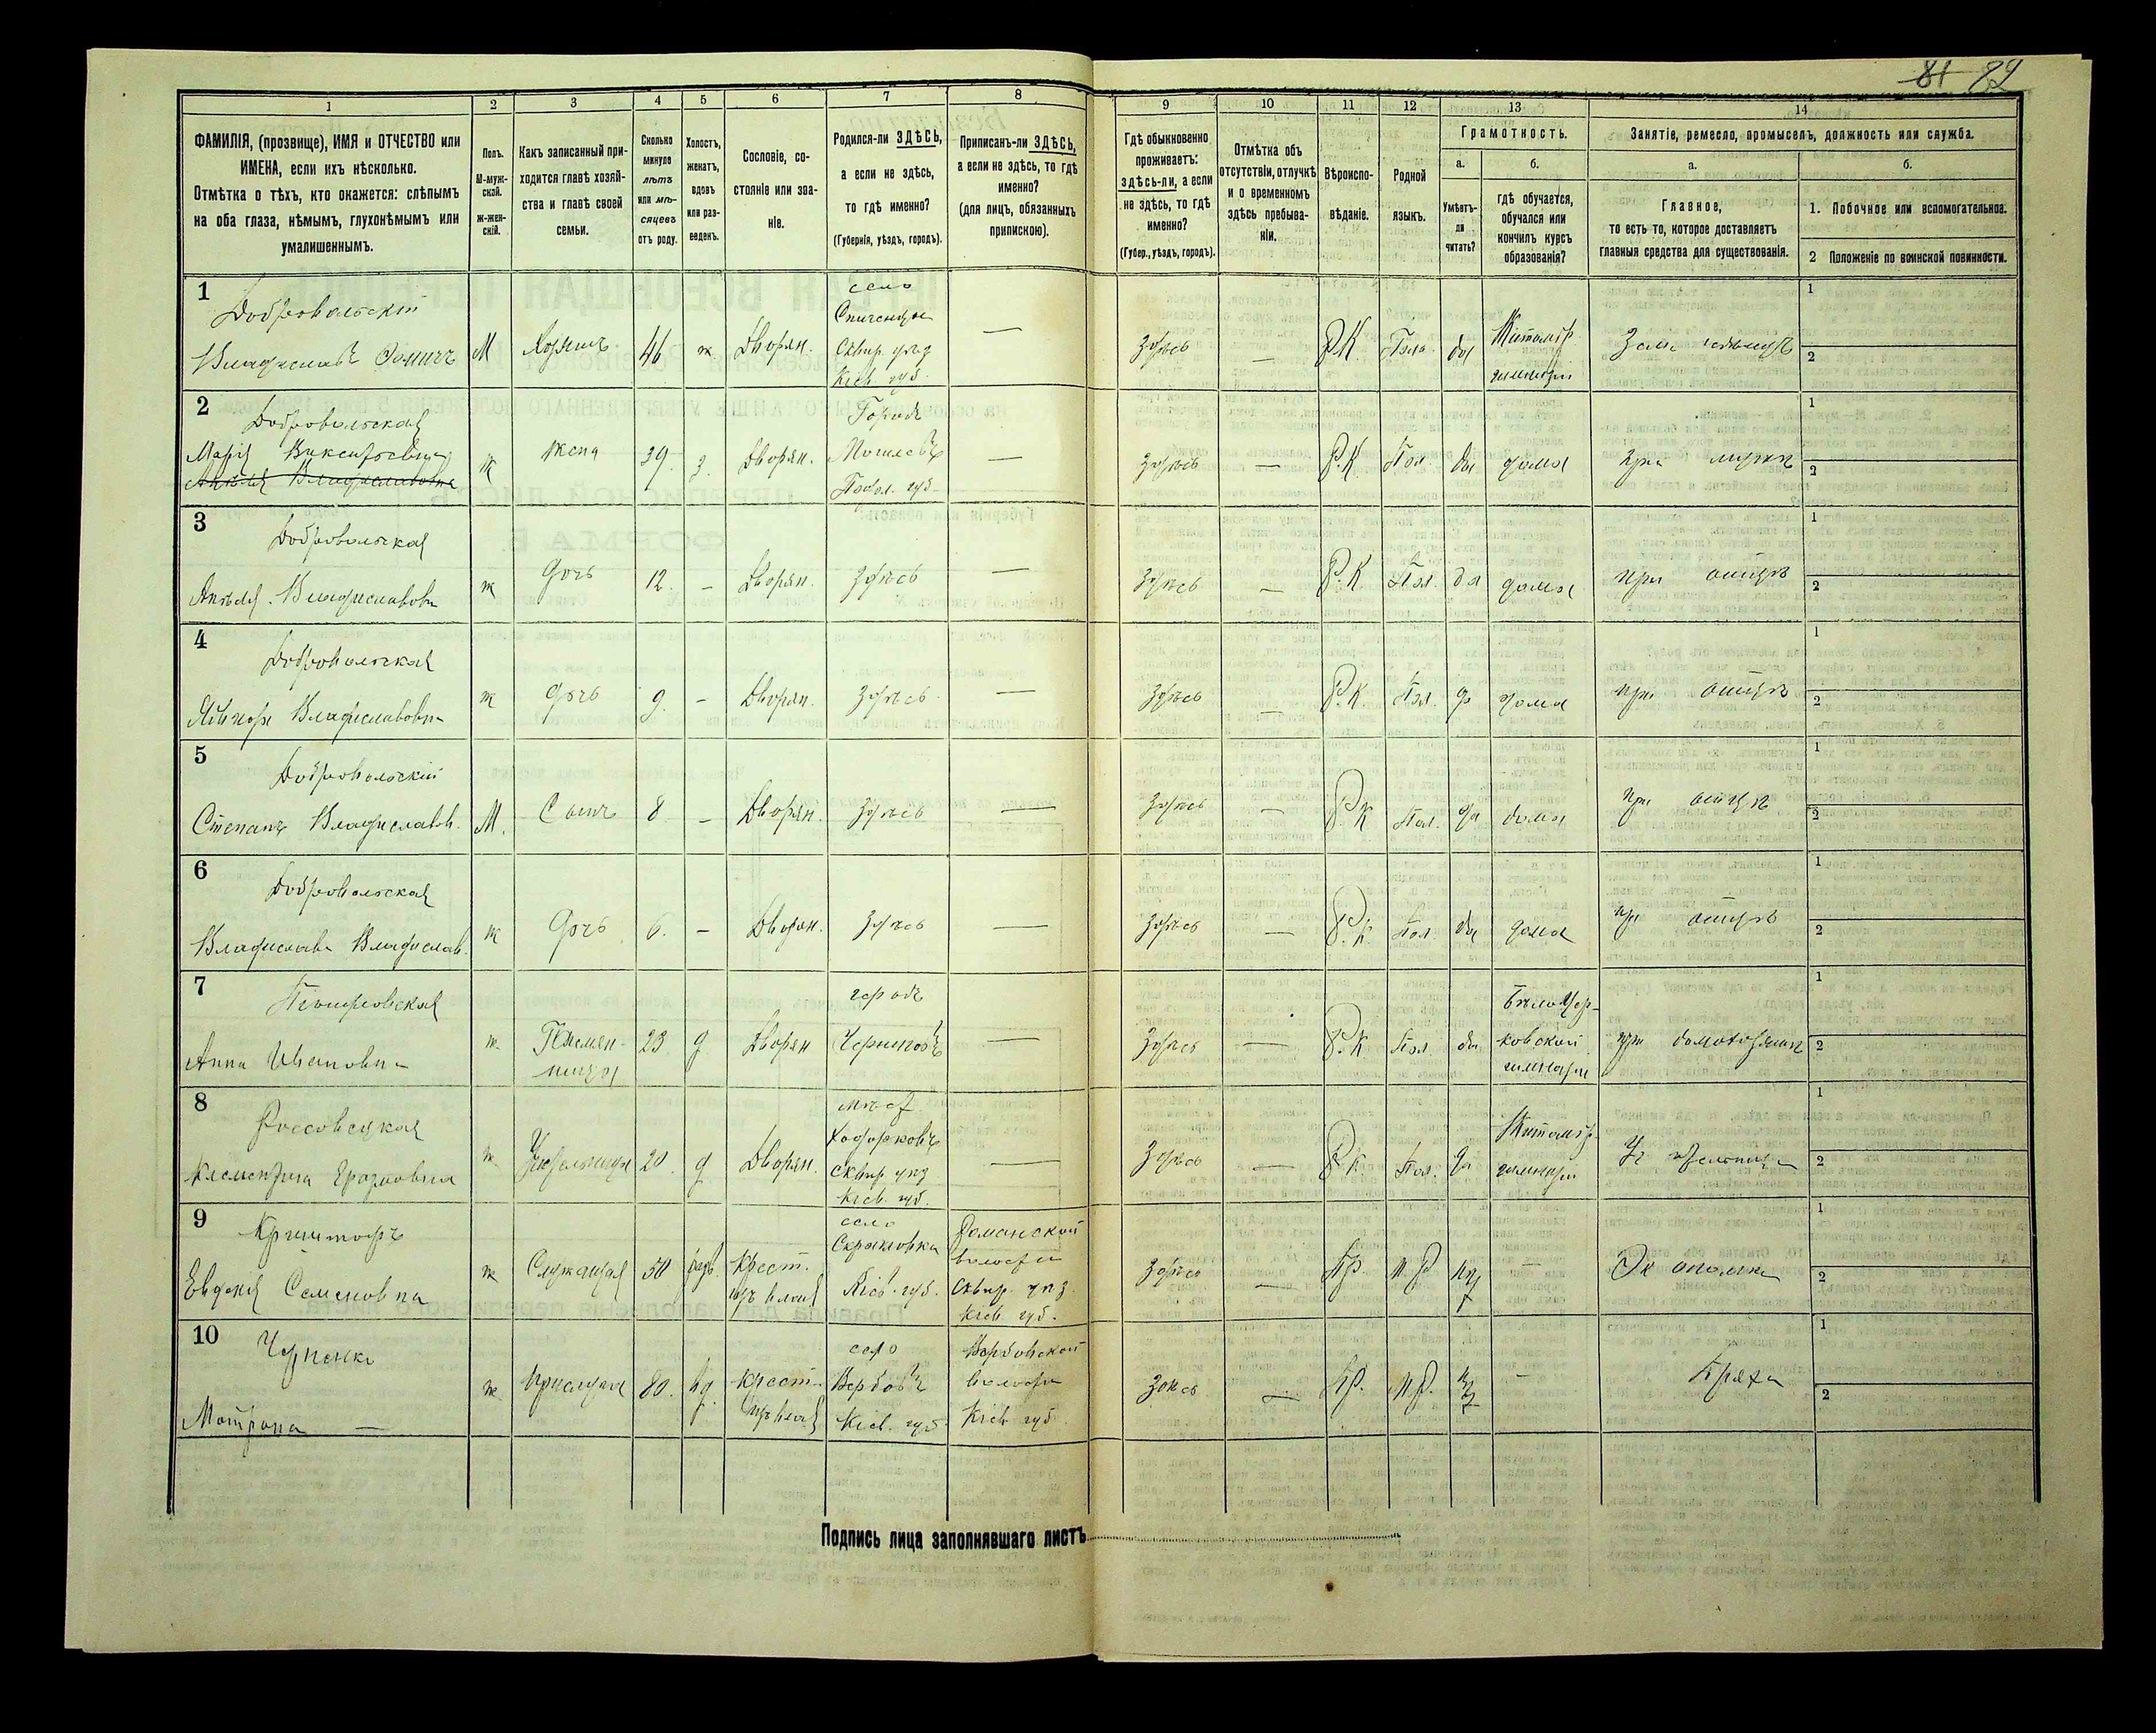 81 82
1 2 3 4 5 6 7 8 9 10 11 12 13 14
ФАМИЛІЯ, (прозвище), ИМЯ и ОТЧЕСТВО или
ИМЕНА, если ихъ нѣсколько.
Отмѣтка о тѣхъ, кто окажется: слѣпымъ
на оба глаза, нѣмымъ, глухонѣмымъ или
умалишеннымъ.
Полъ.
М-муж-
ской.
ж-жен-
скій.
Какъ записанный при-
ходится главѣ хозяй-
ства и главѣ своей
семьи.
Сколько
минуло
лѣтъ
или мѣ-
сяцевъ
отъ роду.
Холостъ,
женатъ,
вдовъ
или раз-
веденъ.
Сословіе, со-
стояніе или зва-
ніе.
Родился-ли ЗДѢСЬ,
а если не здѣсь,
то гдѣ именно?
(Губернія, уѣздъ, городъ).
Приписанъ-ли ЗДѢСЬ,
а если не здѣсь, то гдѣ
именно?
(для лицъ, обязанныхъ
припискою).
Гдѣ обыкновенно
проживаетъ:
здѣсь-ли, а если
не здѣсь, то гдѣ
именно?
(Губер., уѣздъ, городъ).
Отмѣтка объ
отсутствіи, отлучкѣ
и о временномъ
здѣсь пребыва-
ніи.
Вѣроиспо-
вѣданіе.
Родной
языкъ.
Грамотность.
а.
Умѣетъ-
ли
читать?
б.
гдѣ обучается,
обучался или
кончилъ курсъ
образованія?
Занятіе, ремесло, промыселъ, должность или служба.
а.
Главное,
то есть то, которое доставляетъ
главныя средства для существованія.
б.
1. Побочное или вспомогательное.
2 Положеніе по воинской повинности.
1
Добровольскій
Владиславъ М Хозяинъ 46 ж Дворян.
село
Сквир. уѣзд
Кіев. губ.
— здѣсь — Р.К. Пол. да
Житомір
гимназіи
1
2
2
Добровольская
Марія Викентьевна
Анѣля Владиславовна
ж жена 39. з. Дворян.
Городъ
Могилевъ
Подол. губ.
— здѣсь — Р.К. Пол. да дома при мужѣ
1
2
3
Добровольская
Анѣля Владиславовн ж дочь 12. — Дворян. здѣсь — здѣсь — Р.К. Пол. да дома при отцѣ
1
2
4
Добровольская
Владиславовн ж дочь 9. — Дворян. здѣсь — здѣсь — Р.К. Пол. да дома при отцѣ
1
2
5
Добровольскій
Степанъ Владиславов. М. Сынъ 8 — Дворян. здѣсь — здѣсь — Р.К Пол. да дома при отцѣ
1
2
6
Добровольская
Владислава Владислав. ж дочь 6. — Дворян. здѣсь — здѣсь — Р.К. Пол. да дома при отцѣ
1
2
7
Анна Ивановна ж
Племян-
ница
23 д Дворян
городъ
Черниговъ
— здѣсь — Р.К. Пол. да
БѣлоЦер-
ковской
гимназіи
при домохозяинѣ
1
2
8
Россовецкая
Клементина Еразмовна ж Учительница 20. д Дворян.
мѣст.
Ходорковъ
сквир уѣз
Кіев. губ.
— здѣсь — Р.К. Пол. да
Житомір
гимназіи
Учительница
1
2
9
Евдокія Семеновна ж Служащая 50
Крест.
изъ влад
село
Скраковка
Кіев. губ.
Романской
волости
Сквир. уѣз.
Кіев. губ.
здѣсь — Пр. М.Р. нѣт — Экономка
1
2
10
Черненко
Матрона — ж. Прислуга 80. вд.
крест.
изъ влад
село
Вербовъ
Кіев. губ.
Вербовской
волости
Кіев губ
здѣсь — Пр. М.Р. нѣт — Пряха
1
2
Подпись лица заполнявшаго листъ